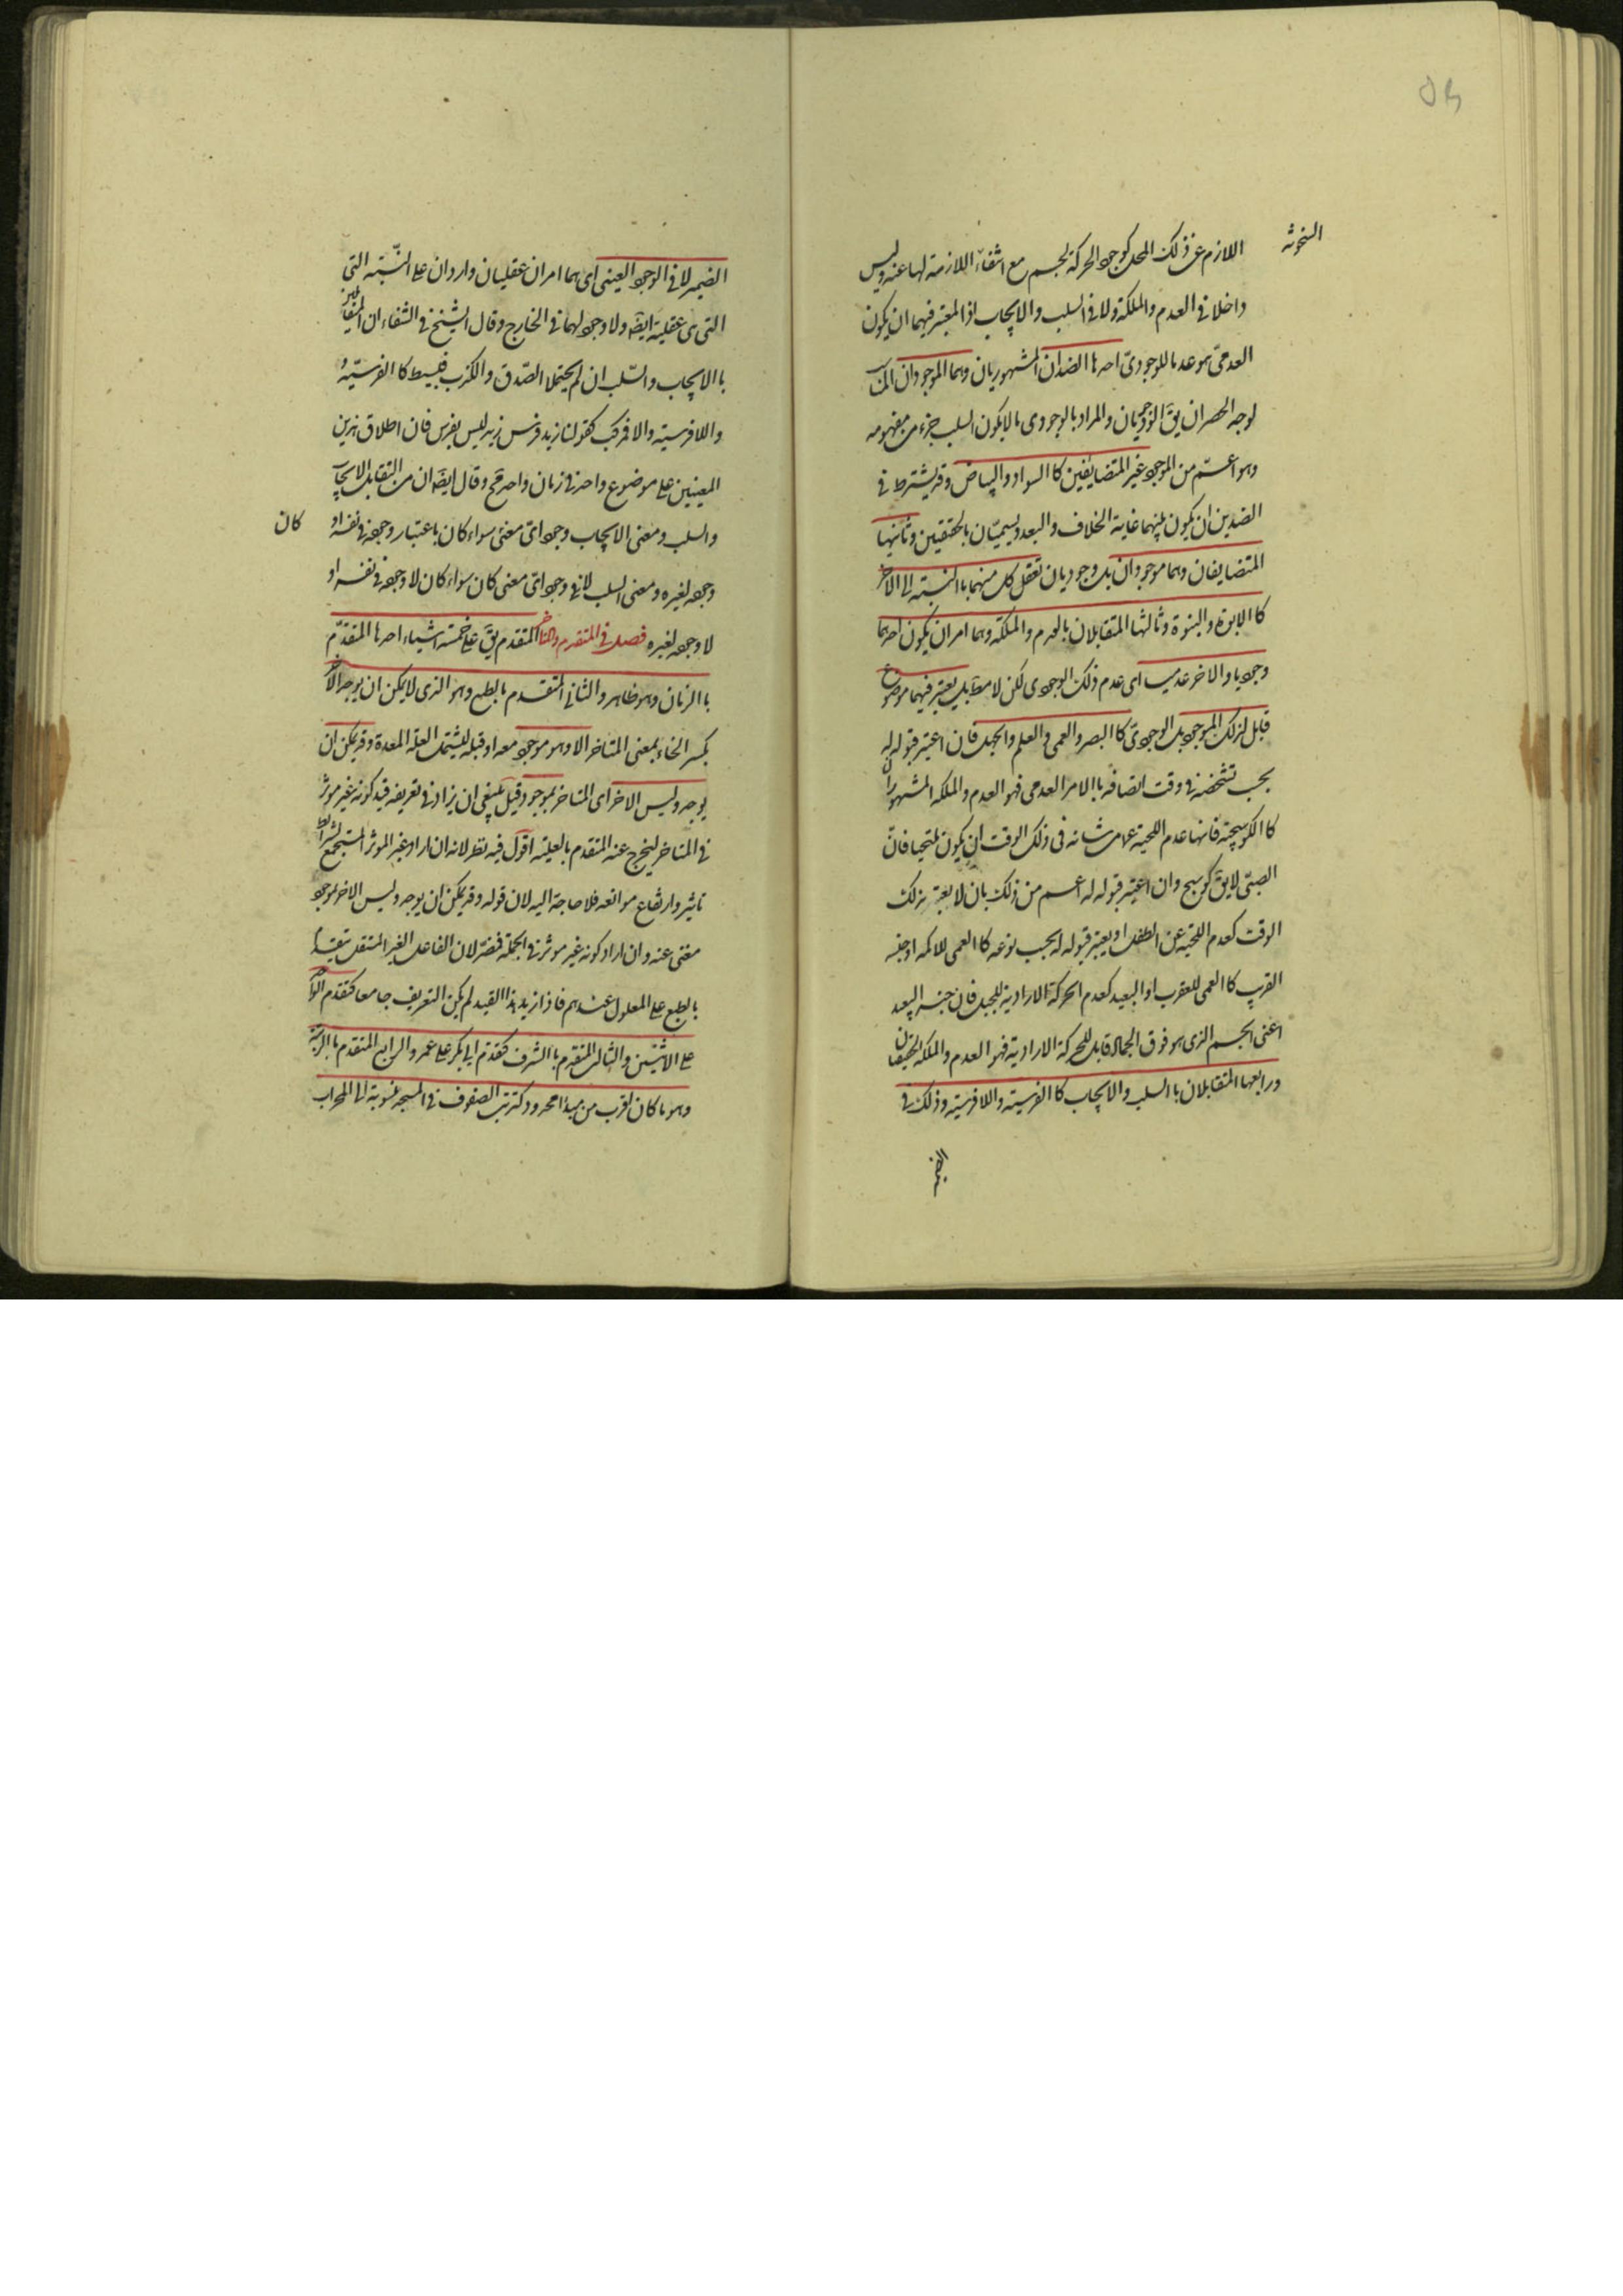 السخونة
اللازم عن ذلك المحل كوجود الحركة لجسم مع انتفاء اللازمة لها عنه وليس
داخلا في العدم والملكة ولا في السلب والايجاب اذ المعتبر فيهما ان يكون
العدمى هو عدما للوجودىّ احدها الضدّان المشهوريان وهما الموجودان
لوجه الحصر ان يقَ الوجوديان والمراد بالوجودى ما لا يكون السلب جزء من مفهومه
وهو اعمّ من الموجود غير المتضايفين كالسواد والبياض وقد يشترط في
الضدين ان يكون بينهما غاية الخلاف والبعد ويسميّان بالحقيقين وثانيها
المتضايفان وهما موجودان بل وجوديان تعقل كل منهما باالنسبة الى الآخر
كاالابوة والبنوة وثالثها المتقابلان بالعدم والملكة وهما امران يكون احدهما
وجوديا والاخر عدميا اى عدم ذلك الوجودى لكن لا مطَ بل يعتبر فيهما موضوع
قابل لذلك الموجود بل الوجودىّ كاالبصر والعمى والعلم والجهل فان اعتبر قبوله له
بحسب تشخصه في وقت اتصافه باالامر العدمى فهو العدم والملكة المشهوران
كاالكوسجية فانها عدم اللحية عما من شانه فى ذلك الوقت ان يكون ملتحيا فانّ
الصبىّ لا يقَ كوسج وان اعتبر قبوله له اعم من ذلك بان لا يعتبر بذلك
الوقت كعدم اللحية عن الطفل او يعتبر قبوله له بحسب نوعه كاالعمى للاكمه او جنسه
القريب كاالعمى للعقرب او البعيد كعدم الحركة الارادية للجبل فان جنسه البعيد
اعنى الجسم الذى هو فوق الجماد قابل للحركة الارادية فهو العدم والملكة الحقيقيان
ورابعها المتقابلان باالسلب والايجاب كاالفرسية واللافرسية وذلك في
الضمير
الضمير لا في الوجود العينى اى هما امران عقليان واردان على النّسبة التي
التى هى عقلية ايضَ ولا وجود لهما في الخارج وقال الشيخ في الشفاء ان المتقابلين
باالايجاب والسّلب ان لم يحتملا الصّدق والكذب فبسيط كاالفرسيّة
واللافرسية والا فمركب كقولنا زيد فرس زيد ليس بفرس فان اطلاق هذين
المعنيين على موضوع واحد في زمان واحد مح وقال ايضَ ان من التقابل الايجاب
والسلب ومعنى الايجاب وجود اىّ معنى سواء كان باعتبار وجوده في نفسه او كان
وجوده لغيره ومعنى السلب لا في وجود اىّ معنى كان سواء كان لا وجوده في نفسه او
لا وجوده لغيره فصل في المتقدم والمتاخر المتقدم يقَ على خمسة اشياء احدها المتقدّم
باالزمان وهو ظاهر والثانى المتقدم بالطبع وهو الذى لا يمكن ان يوجد الآخر
بكسر الخاء بمعنى المتاخر الا وهو موجود معه او قبله ليشتمل العلّة المعدة وقد يمكن ان
يوجد وليس الاخر اى المتاخر بموجود قيل ينبغى ان يزاد في تعريفه قيد كونه غير موثر
في المتاخر ليخرج عنه المتقدم بالعلية اقول فيه نظر لانه ان اراد غير الموثر المستجمع لشرائط
تاثير وارتفاع موانعه فلا حاجة اليه لان قوله وقد يمكن ان يوجد وليس الاخر بموجود
مغنى عنه وان اراد كونه غير موثر في الجملة فمضرّ لان الفاعل الغير المستقل يتقدم
بالطبع على المعلول عندهم فاذا زيد هذا القيد لم يكن التعريف جامعا كتقدم الواحد
على الاثنين والثالث المتقدم بالشرف كتقدم ابى بكر على عمر والرابع المتقدم باالرتبة
وهو ما كان اقرب من مبدا محدود كترتب الصفوف في المسجد منسوبة الى المحراب